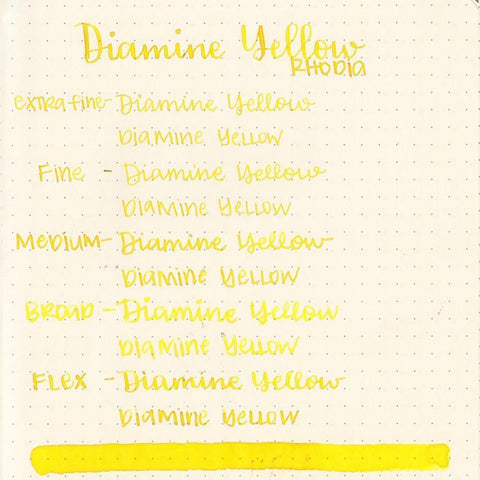 Diamine Yellow
RHODIA
extra-fine - Diamine Yellow
Diamine Yellow
Fine - Diamine Yellow
Diamine Yellow
Medium - Diamine Yellow
Diamine Yellow
Broad - Diamine Yellow
Diamine Yellow
Flex - Diamine Yellow
Diamine Yellow